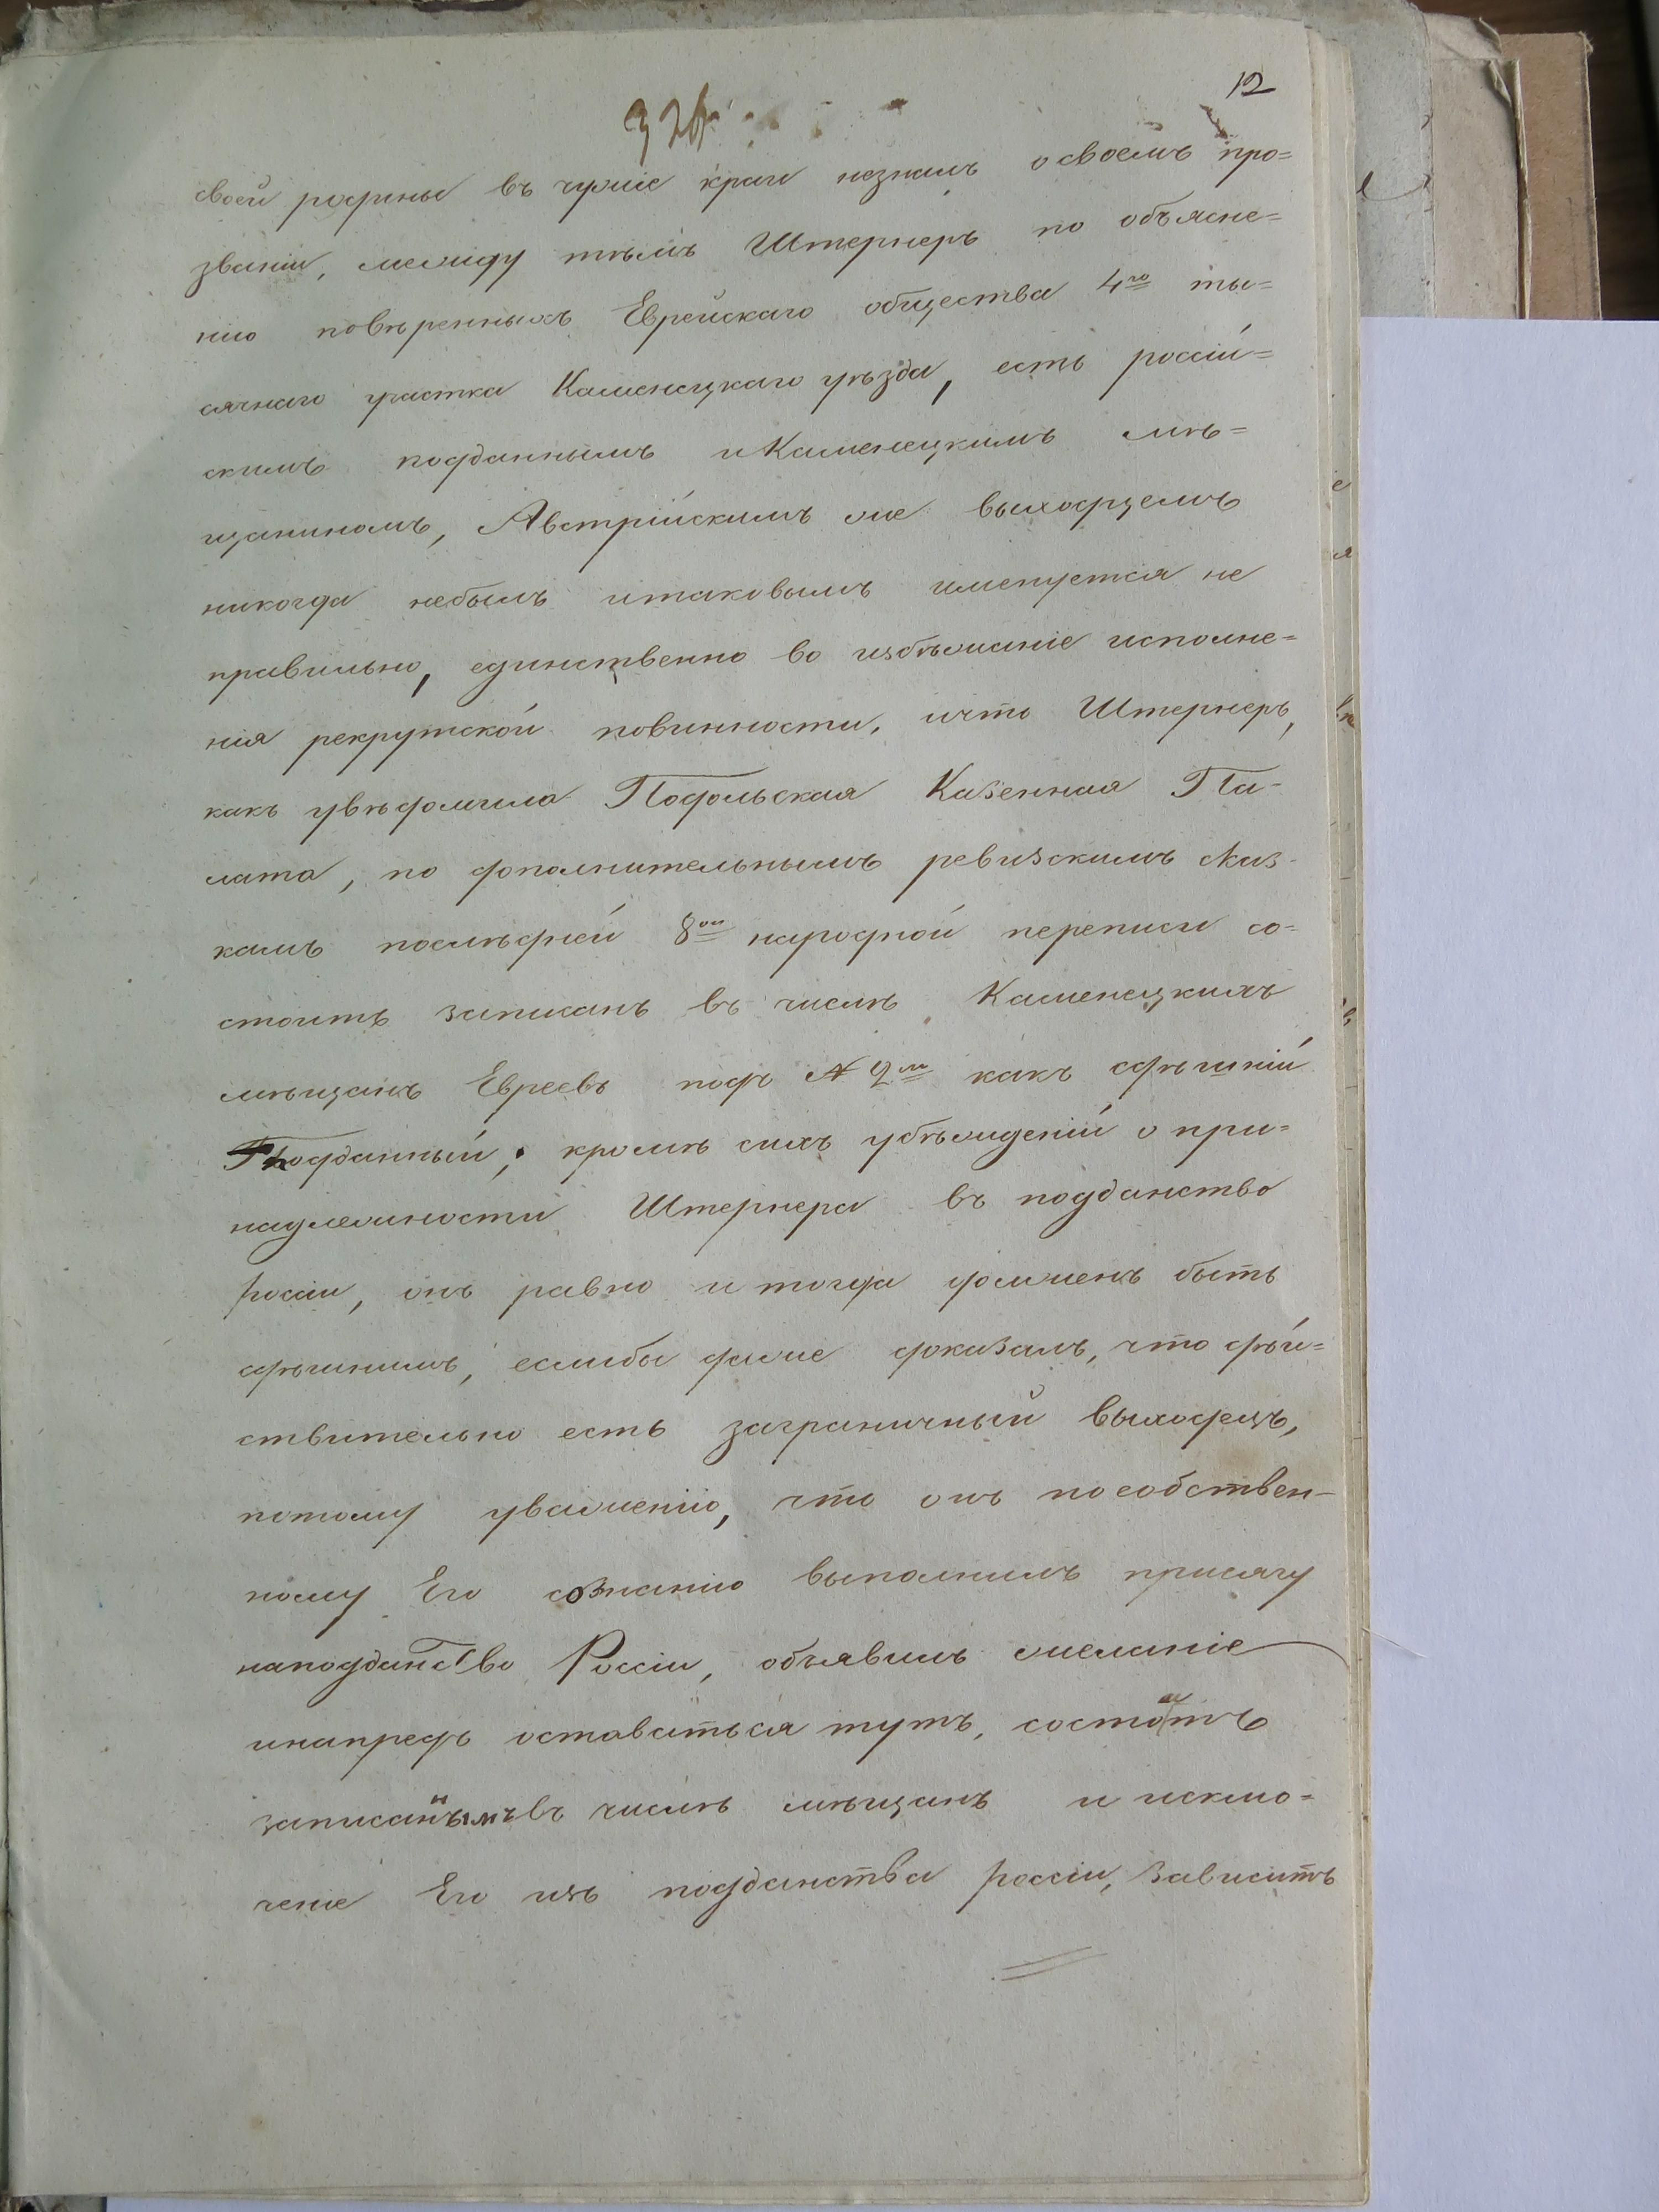 12
своей родины въ чужіе краи незналъ о своемъ про=
званіи, между тѣмъ Штернеръ по объясне=
нію повѣренныхъ Еврейскаго общества 4го ты=
сячнаго участка Каменецкаго уѣзда, есть россій=
скимъ подданнымъ и Каменецкимъ мѣ=
щаниномъ, Австрійскимъ же выходцемъ
никогда небылъ итаковымъ именуется не
правильно, единственно во избѣжаніе исполне=
нія рекрутской повинности, ичто Штернеръ,
какъ увѣдомила Подольская Казенная Па-
лата, по дополнительнымъ ревизскимъ сказ-
камъ послѣдней 8ой народной переписи со=
стоитъ записанъ въ числѣ Каменецкихъ
мѣщанъ Евреевъ подъ № 2м какъ здѣшній
Подданный; кромѣ сихъ убѣжденій о при=
надлежности Штернера въ подданство
россіи, онъ равно и тогда долженъ быть
здѣшнимъ, еслибы даже доказалъ, что дѣй=
ствительно есть заграничный выходецъ,
потому уваженію, что онъ пособствен-
ному Его сознанію выполнилъ присягу
наподданство Россіи, объявилъ желаніе
инапредъ оставаться тутъ, состоитъ
записаннымъ въ числѣ мѣщанъ и исклю=
ченіе Его изъ подданства россіи, зависитъ